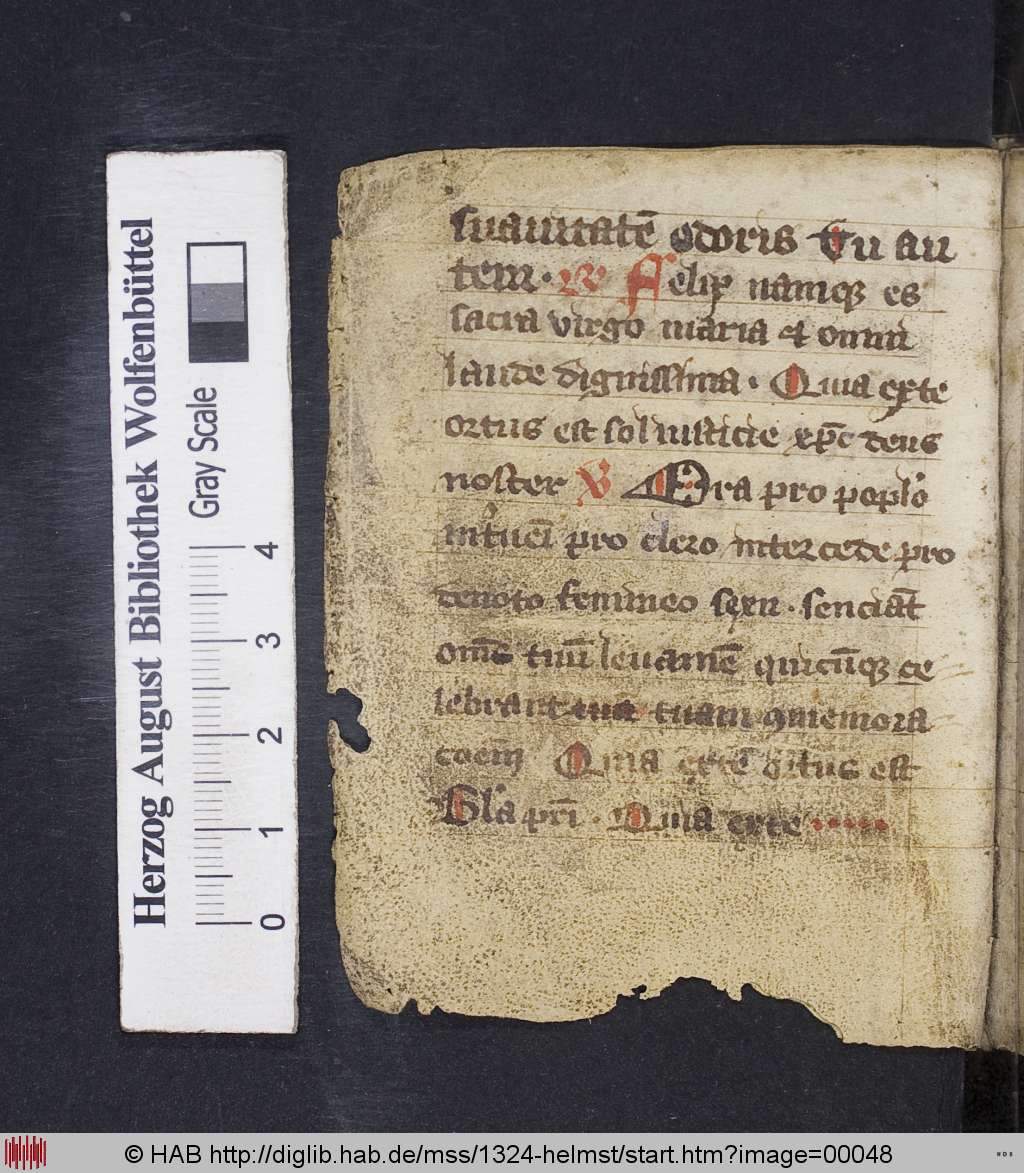 Herzog August Bibliothek Wolfenbüttel
Gray Scale
0 1 2 3 4
suauitatē odoris Tu au
tem · R Felix namqȝ es
sacra virgo maria et omni
laude dignissima · Quia ex te
ortus est sol iusticie xp̄c deus
noster V Ora pro poplo
int'uēi pro clero intercede pro
deuoto femineo sexu · senciāt
om̄s tuū leuamē quicūqȝ ce
lebrant tua tuam ꝯmemora
coem̄ Quia ex te ortus est
Gl'a pri · Quia ex te
© HAB http://diglib.hab.de/mss/1324-helmst/start.htm?image=00048